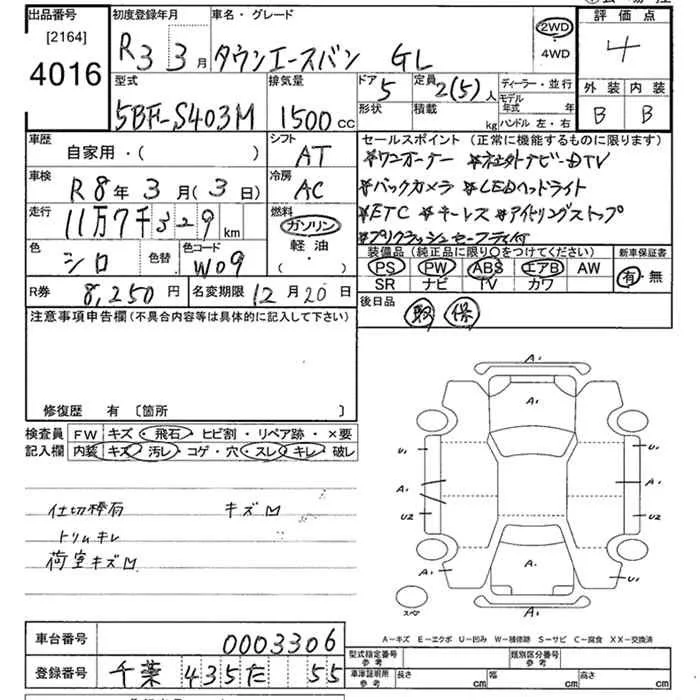 出品番号 初度登録年月 車名・グレード 評価点
[2164] 4016
R3 3月 タウンエースバン GL 2WD 4WD 4
型式 排気量 ドア 定員 ディーラー・並行 外装 内装
5BF-S403M 1500cc 5 2(5)人 モデル年式 年 B B
形状 積載 kg ハンドル 左・右
車歴 シフト セールスポイント (正常に機能するものに限ります)
自家用・( ) AT ※ワンオーナー ※社外ナビ-DTV
車検 冷房 ※バックカメラ ※LEDヘッドライト
R8年3月(3日) AC ※ETC ※キーレス ※アイドリングストップ
走行 燃料 ※プリクラッシュセーフティ付
11万7千329km ガソリン 軽油 ・( )
色 色替 色コード 装備品 (純正品に限り○をつけてください) 新車保証書
シロ W09 PS PW ABS エアB AW 有・無
SR ナビ TV カワ
R券 8,250円 名変期限 12月20日 後日品 取 保
注意事項申告欄(不具合内容等は具体的に記入して下さい)
修復歴 有 〔箇所 〕
検査員 FW キズ・飛石・ヒビ割・リペア跡・×要
記入欄 内装 キズ・汚レ・コゲ・穴・スレ・キレ・破レ
仕切棒石 キズM
トリムキレ
荷室キズM
A1
A1
U1 U1
A1 A1
U2 U2
A1
A1 U1
スペア
A1
A-キズ E-エクボ U-凹み W-補修跡 S-サビ C-腐食 XX-交換済
車台番号 0003306
型式指定番号 参考 類別区分番号 参考
登録番号 千葉 435 た 55
車庫証明所 参考 長さ cm 幅 cm 高さ cm